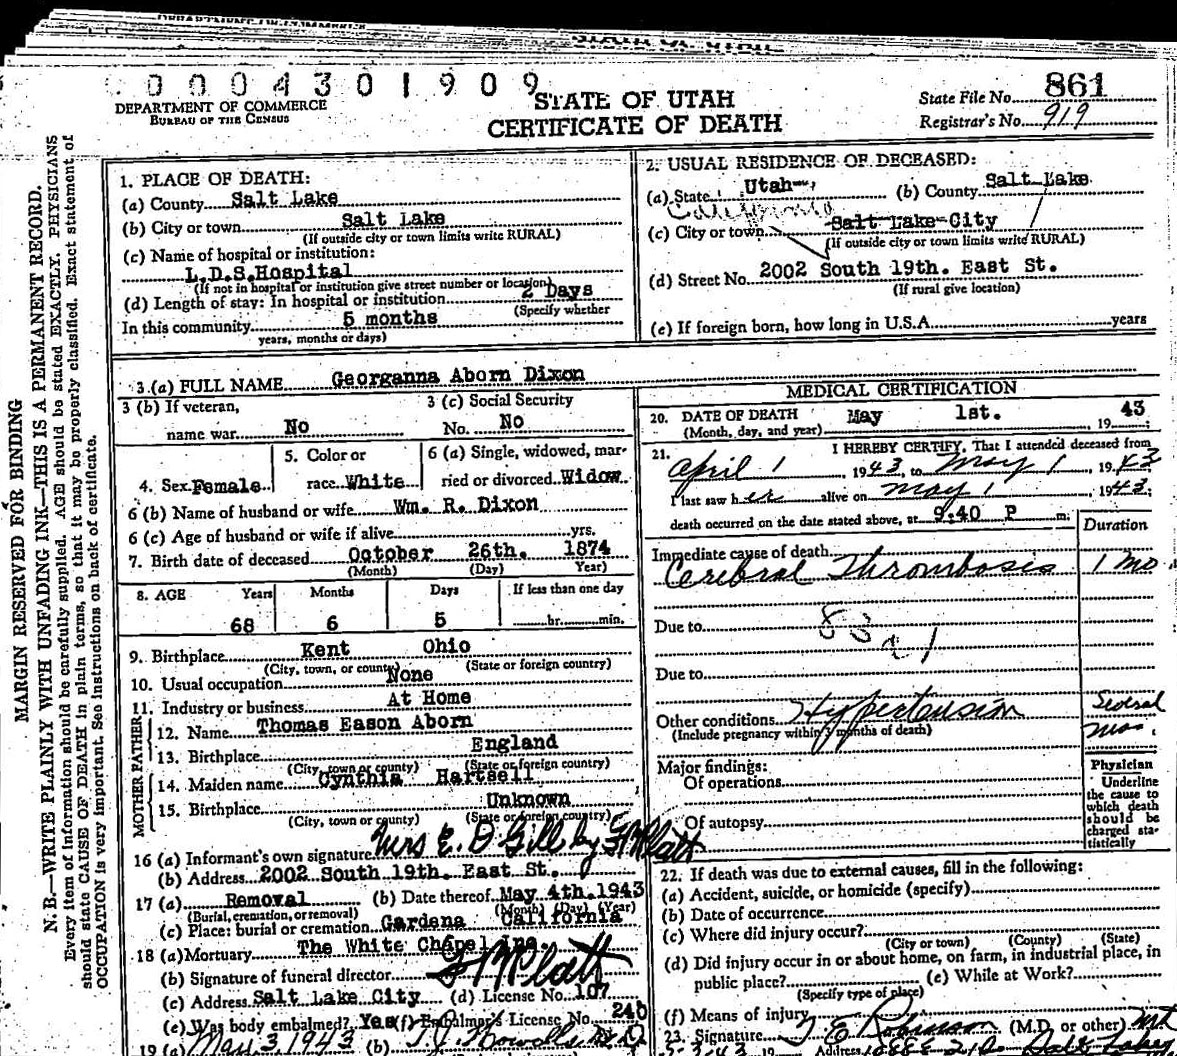 0 0 0 4 3 0 1 9 0 9
DEPARTMENT OF COMMERCE
BUREAU OF THE CENSUS
STATE OF UTAH
CERTIFICATE OF DEATH
State File No. 861
Registrar's No. 919
MARGIN RESERVED FOR BINDING
N. B.—WRITE PLAINLY WITH UNFADING INK—THIS IS A PERMANENT RECORD.
Every item of information should be carefully supplied. AGE should be stated EXACTLY. PHYSICIANS
should state CAUSE OF DEATH in plain terms, so that it may be properly classified. Exact statement of
OCCUPATION is very important. See instructions on back of certificate.
1. PLACE OF DEATH:
(a) County Salt Lake
(b) City or town Salt Lake
(If outside city or town limits write RURAL)
(c) Name of hospital or institution:
L.D.S. Hospital
(If not in hospital or institution give street number or location)
(d) Length of stay: In hospital or institution 2 Days
(Specify whether
In this community 5 months
years, months or days)
2. USUAL RESIDENCE OF DECEASED:
(a) State Utah (b) County Salt Lake
California
(c) City or town Salt Lake City
(If outside city or town limits write RURAL)
(d) Street No. 2002 South 19th. East St.
(If rural give location)
(e) If foreign born, how long in U.S.A. years
3.(a) FULL NAME Georganna Aborn Dixon
3 (b) If veteran,
name war No
3 (c) Social Security
No. No
4. Sex Female
5. Color or
race White
6 (a) Single, widowed, mar-
ried or divorced Widow
6 (b) Name of husband or wife Wm. R. Dixon
6 (c) Age of husband or wife if alive yrs.
7. Birth date of deceased October 26th. 1874
(Month) (Day) Year)
8. AGE Years Months Days If less than one day
68 6 5 hr. min.
9. Birthplace Kent Ohio
(City, town, or county) (State or foreign country)
10. Usual occupation None
11. Industry or business At Home
MOTHER FATHER
12. Name Thomas Eason Aborn
13. Birthplace England
(City, town or county) (State or foreign country)
14. Maiden name Cynthia Hartsell
15. Birthplace Unknown
(City, town or county) (State or foreign country)
16 (a) Informant's own signature Mrs E. D Gill by F M Platt
(b) Address 2002 South 19th. East St.
17 (a) Removal (b) Date thereof May 4th. 1943
(Burial, cremation, or removal) (Month) (Day) (Year)
(c) Place: burial or cremation Gardena California
18 (a) Mortuary The White Chapel Inc.
(b) Signature of funeral director F M Platt
(c) Address Salt Lake City (d) License No. 107
(e) Was body embalmed? Yes (f) Embalmer's License No. 240
19 (a) May 3, 1943 (b)
MEDICAL CERTIFICATION
20. DATE OF DEATH May 1st. , 19 43
(Month, day, and year)
21. I HEREBY CERTIFY, That I attended deceased from
April 1, 1943, to May 1, 1943
I last saw her alive on May 1, 1943;
death occurred on the date stated above, at 9:40 P m.
Duration
Immediate cause of death
Cerebral Thrombosis 1 mo
Due to
83
Due to
Other conditions Hypertension Several mos.
(Include pregnancy within 3 months of death)
Major findings:
Of operations
Of autopsy
Physician
Underline
the cause to
which death
should be
charged sta-
tistically
22. If death was due to external causes, fill in the following:
(a) Accident, suicide, or homicide (specify)
(b) Date of occurrence
(c) Where did injury occur?
(City or town) (County) (State)
(d) Did injury occur in or about home, on farm, in industrial place, in
public place? (e) While at Work?
(Specify type of place)
(f) Means of injury
23. Signature T E Robinson (M.D. or other) MD
Address